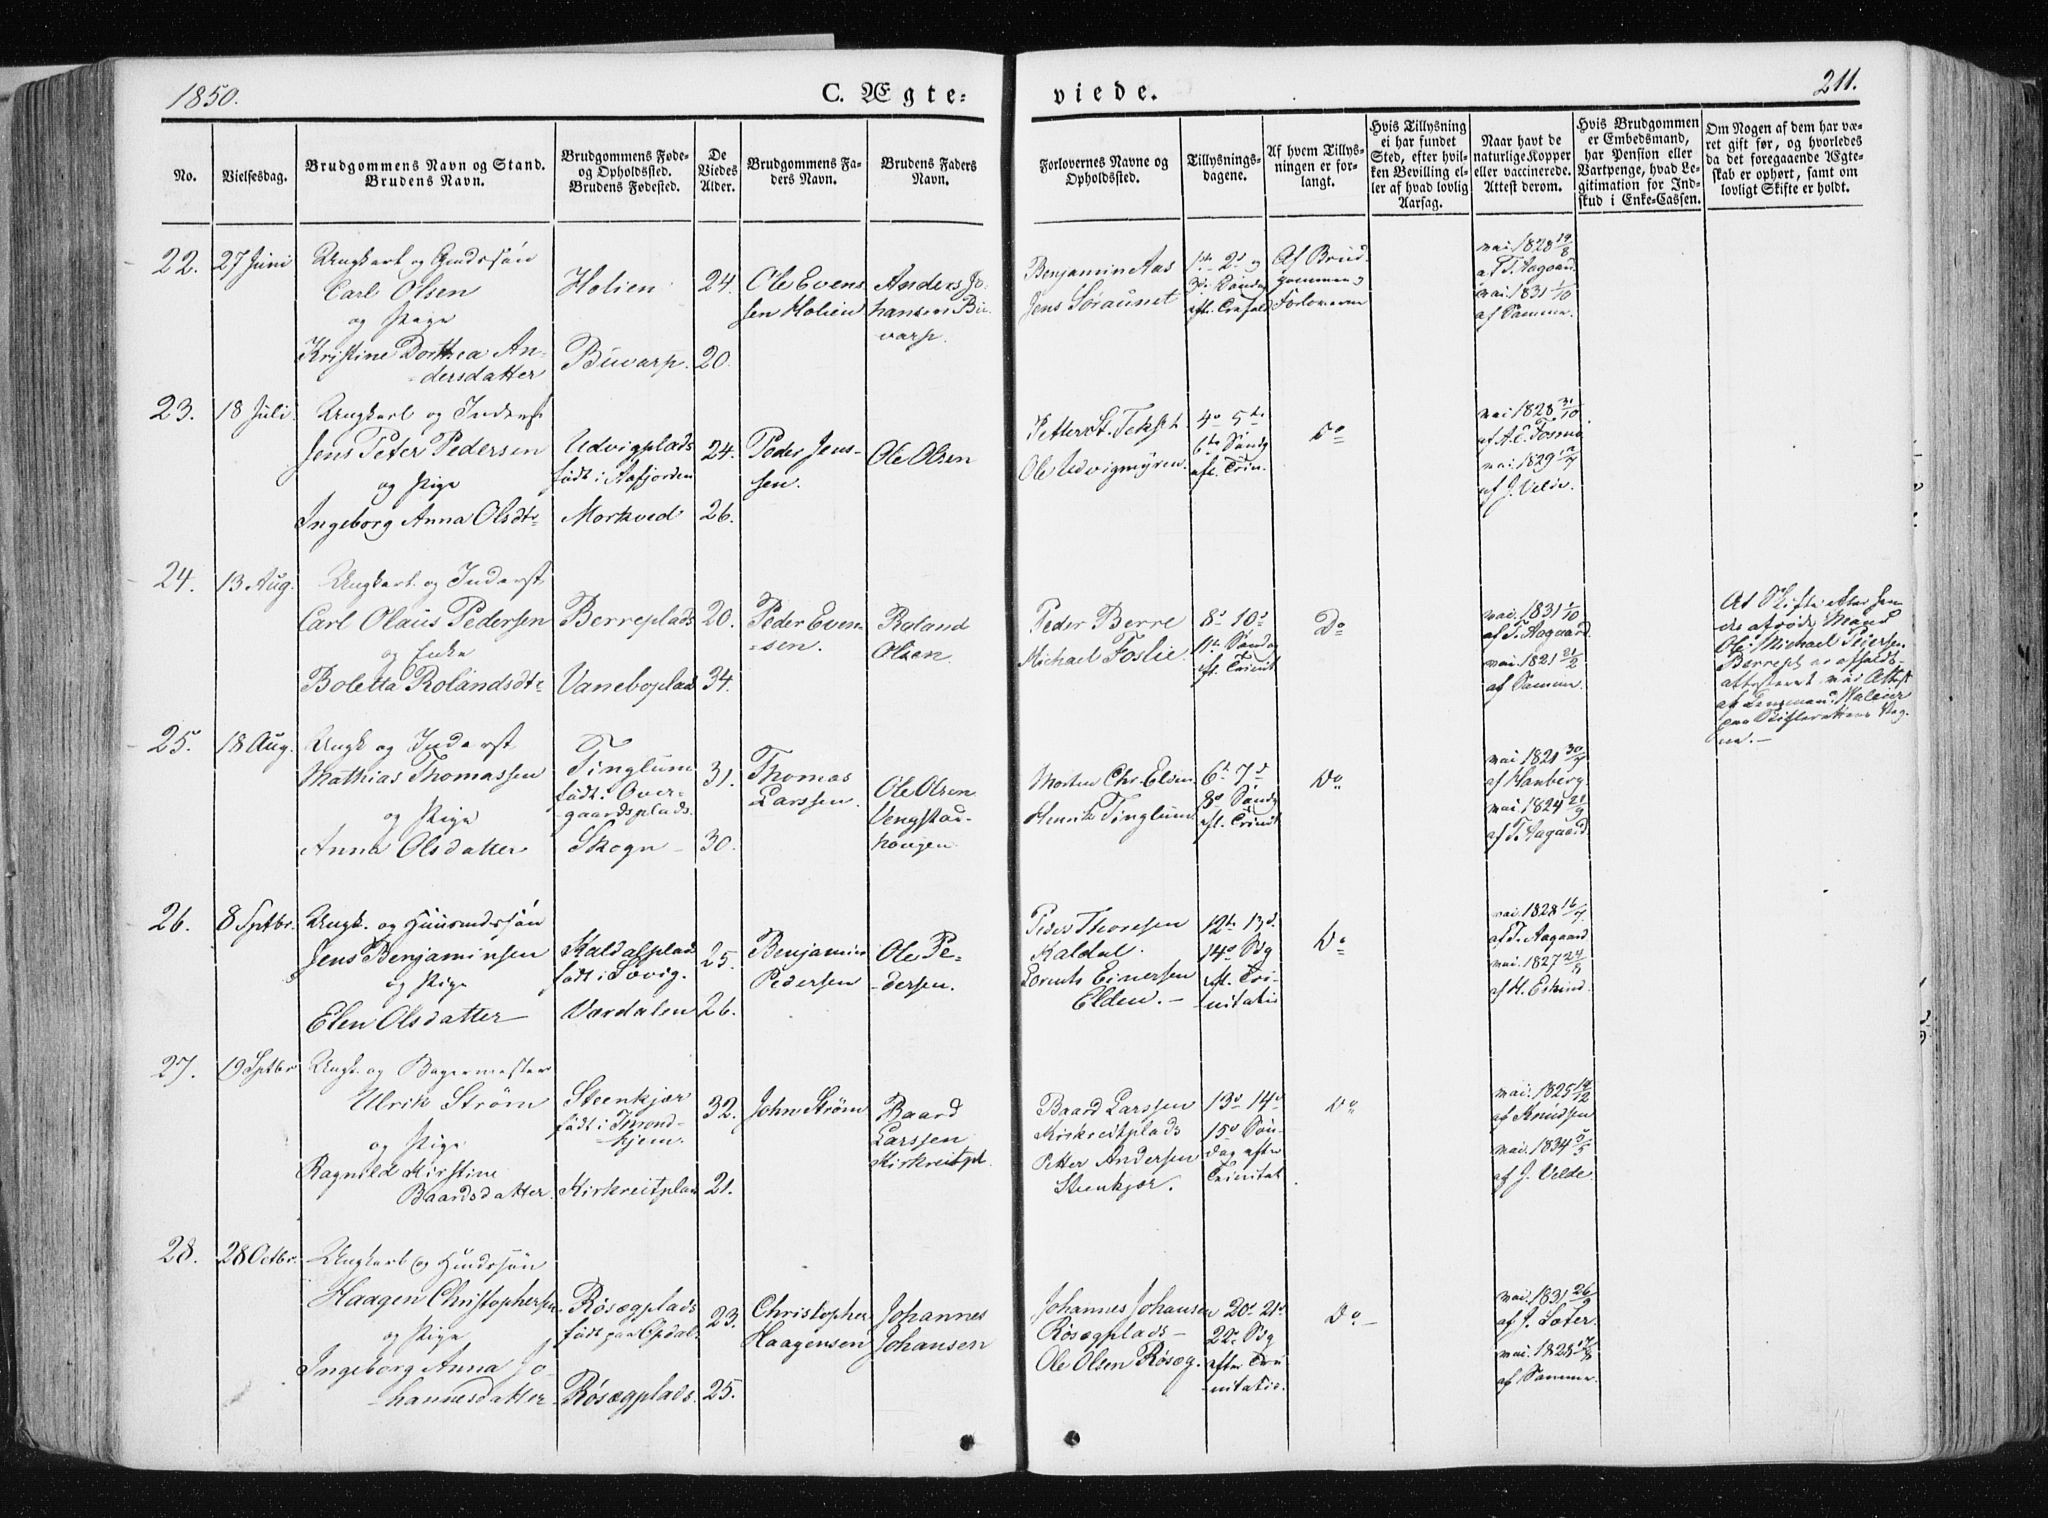 1850.
C. Ægte-
viede.
211.
No.
Vielsesdag.
Brudgommens Navn og Stand.
Brudens Navn.
Brudgommens Føde-
og Opholdssted.
Brudens Fødested.
De
Viedes
Alder.
Brudgommens Fa-
ders Navn.
Brudens Faders
Navn.
Forlovernes Navne og
Opholdssted.
Tillysnings-
dagene.
Af hvem Tillys-
ningen er for-
langt.
Hvis Tillysning
ei har fundet
Sted, efter hvil-
ken Bevilling el-
ler af hvad lovlig
Aarsag.
Naar havt de
naturlige Kopper
eller vaccinerede.
Attest derom.
Hvis Brudgommen
er Embedsmand,
har Pension eller
Vartpenge, hvad Le-
gitimation for Ind-
skud i Enke-Cassen.
Om Nogen af dem har væ-
ret gift før, og hvorledes
da det foregaaende Ægte-
skab er ophørt, samt om
lovligt Skifte er holdt.
22.
27 Juni
Ungkarl og Gaardssøn
Carl Olsen
og Pige
Kristine Dorthea An-
dersdatter
Holien
Buvarp.
24.
20.
Ole Evens
sen Holien
Anders Jo-
hansen Bu-
varp.
Benjamin Aas
Jens Søraunet
1ste 2d og
3die Søndag
eft. Trefold
Af Brud-
gommen og
Forloverne
vai. 1828 19/8
af T. Aagaard
vai. 1831 1/10
af Samme.
23.
18 Juli.
Ungkarl og Inderst
Jens Peter Pedersen
og Pige
Ingeborg Anna Olsdtr
Udvigplads
født i Stafjorden
Morkved
24.
26.
Peder Jens-
sen.
Ole Olsen
Petter St. Tekset
Ole Udvigmyren.
4d 5te
6te Søndg
eft. Trin.
Do
vai. 1828 31/10
vai. 1829
af J. Velde.
24.
13 Aug.
Ungkarl og Inderst
Carl Olaus Pedersen
og Enke
Boletta Rolandsdtr
Berreplads
Vaneboplads
20.
34.
Peder Even-
sen.
Roland
Olsen.
Peder Berre
Michael Foslie.
8d 10d
11te Søndag
eft. Trinit
Do
vai. 1831 1/10
af T. Aagaard
vai. 1821 21/2
af Samme.
At Skifte efter hen-
des afdøde Mand
Ole Michael Petersen
Berrepl er afholdt
attesteret ved Attest
af Lensmand Holien
25.
18 Aug.
Ungk og Inderst
Mathias Thomassen
og Pige
Anna Olsdatter
Tinglum
født i Over-
gaardsplads.
Skogn
31.
30.
Thomas
Larssen.
Ole Olsen
Vengstad-
hougen.
Morten Chr. Elden
Henrik Tinglum
6te 7d
8d Søndg
eft. Trinit
Do
vai. 1821 30/7
af Hanberg
vai. 1824 21/9
af T. Aagaard.
26.
8 Septbr.
Ungk. og Huusmdssøn
Jens Benjaminsen
og Pige
Elen Olsdatter
Kaldalplads
født i Løvig.
Værdalen
25.
26.
Benjamin
Pedersen
Ole Pe-
dersen.
Peder Thoresen
Kaldal.
Lorents Einersen
Elden.
12te 13d
14d Sdg
eft. Tri-
nitatis
Do
vai. 1828 16/7.
af T. Aagaard
vai. 1827 24/8
af H. Eskind.
27.
19 Septbr
Ungk. og Bagermester
Ulrik Strøm
og Pige
Ragnild Kirstine
Baardsdatter.
Steenkjær
født i Trond-
hjem.
Kirkreitplads
32.
21.
John Strøm
Baard
Larssen
Kirkreitpl.
Baard Larssen
Kirkreitplads
Petter Andersen
Steenkjær.
13d 14d
15d Søn-
dag efter
Trinitat.
Do
vai. 1825 14/12
af Knudsen
vai. 1834 5/5
af J. Velde.
28.
28 Octbr.
Ungkarl og Huusmdssøn
Haagen Christophersen
og Pige
Ingeborg Anna Jo-
hannesdatter
Røsægplads
født paa Opdal.
Røsægplads.
23.
25.
Christopher
Haagensen
Johannes
Johansen
Johannes Johansen
Røsægplads
Ole Olsen Røsæg.
20d 21d
22d Sdg
efter Tri-
nitatis.
Do
vai. 1831 26/9
af J. Sæter.
vai. 1828 17/8
af Samme.